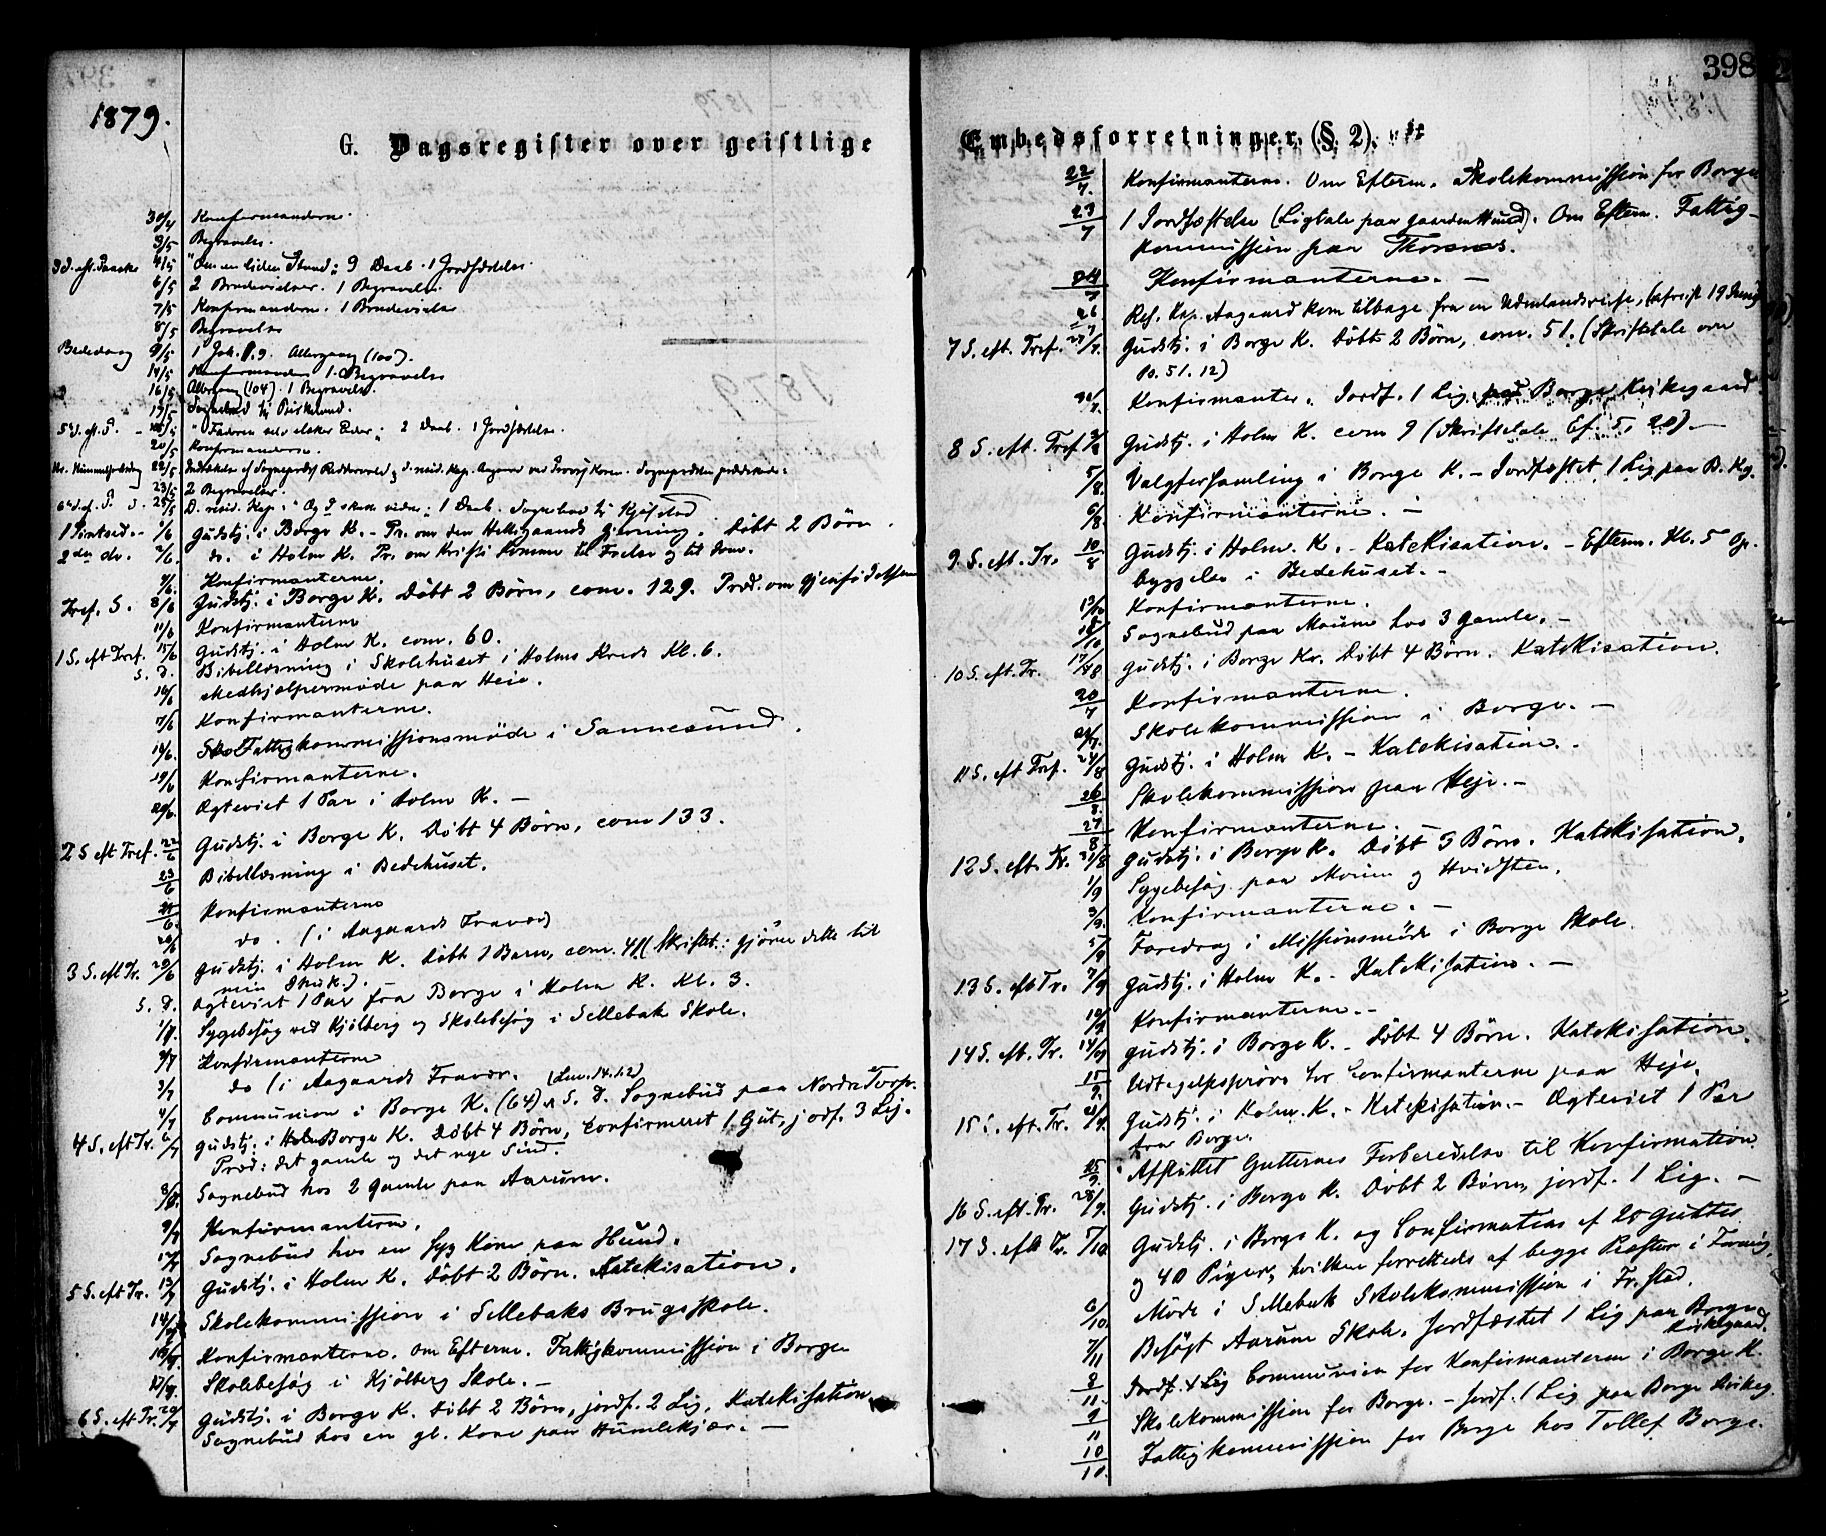 398
1879.
G. Dagsregister over geistlige
30/4 Konfirmanderne.
3/5 Begravelse.
3 S. eft. Paaske 4/5 "Om en liden Stund"; 9 Daab. 1 Jordfæstelse.
6/5 2 Brudevielser. 1 Begravelse.
7/5 Konfirmanderne. 1 Brudevielse
8/5 Begravelse
Bededag 9/5 1 Joh. 1.9. Altergang (100).
14/5 Konfirmanderne 1 Begravelse
16/5 Altergang (104). 1 Begravelse.
Sognebud til
5 S. eft. P. 18/5 "Faderen selv elsker Eder"; 2 Daab. 1 Jordfæstelse.
20/5 Konfirmanderne.
22/5 Indsættelse af Sognepræst og resid. Kap. Aagaard ved Provst
23/5 2 Begravelser.
6 S. ef. P. 25/5 D. resid. Kap. 1 Daab. Sognebud til
1 Pintsed. 1/6 Gudstj. i Borge K. - Pr. om den Helligaands Gjerning. Døbt 2 Børn.
2den do. 2/6 do. i Holm K. Pr. om Kristi Komme til Frelse og til Dom.
Konfirmanterne.
Tref. S. 8/6 Gudstj. i Borge K. Døbt 2 Børn, com. 129. Præd. om Gjenfødelsen
11/6 Konfirmanterne
1 S. eft Tref. 15/6 Gudstj. i Holm K. com. 60.
S. D. Bibellæsning i Skolehuset i Holms Kreds Kl. 6.
16/6 Medhjælpermøde paa Heie.
Konfirmanterne.
Fattigkommissionsmøde i Sannesund.
19/6 Konfirmanterne.
20/6 Ægteviet 1 Par i Holm K. -
2 S eft Tref. 22/6 Gudstj. i Borge K. Døbt 4 Børn, com 133.
23/6 Bibellæsning i Bedehuset.
Konfirmanterne
26/6 do. (i Aagaards Fravær)
3 S. eft Tr. 29/6 Gudstj. i Holm K. Døbt 1 Barn, com. 41 (Skriftet.: Gjører dette til
min Ihuk.).
S. D. Ægteviet 1 Par fra Borge i Holm K. Kl. 3.
1/7. Sygebesøg ved Kjølberg og Skolebesøg i Sellebak Skole.
2/7 Konfirmanterne
3/7 do (i Aagaards Fravær. (Luc. 14.12)
4/7 Communion i Borge K. (64) S. D. Sognebud paa Nordre Torp.
4 S. eft Tr. 6/7 Gudstj. i Borge K. Døbt 4 Børn, confirmeret 1 Gut, jordf. 3 Lig.
Præd: det gamle og det nye Sind.
8/7. Sognebud hos 2 Gamle paa Aarum.
9/7 Konfirmanterne.
Sognebud hos en syg Kone paa Hund.
5 S. eft Tr. 13/7 Gudstj. i Holm K. Døbt 2 Børn. Katekisation.
14/7 Skolekommission i Sellebaks Brugsskole.
Konfirmanterne. Om Efterm. Fattigkommission i Borge
17/7. Skolebesøg i Kjølberg Skole. -
6 S. eft Tr. 20/7 Gudstj. i Borge K. Døbt 2 Børn, jordf. 2 Lig. Katekisation
Sognebud hos en gl. Kone paa Humlekjær. -
Embedsforretninger (§. 2).
22/7. Konfirmanterne. Om Efterm. Skolekommission for Borge
23/7 1 Jordfæstelse (Ligtale paa Gaarden Hund). Om Efterm. Fattig-
kommission paa Thorsnes.
24/7 Konfirmanterne. -
26 Res. Kap. Aagaard kom tilbage fra en Udenlandsreise, (afreist 19 Juni)
7 S. eft. Tref. 27/7. Gudstj. i Borge K. Døbt 2 Børn, com. 51. (Skriftetale over
Ps. 51. 12)
Konfirmanter. Jordf. 1 Lig Borge Kirkegaard
8 S. eft. Tref 3/8 Gudstj. i Holm K. com 9 (Skriftetale Ef. 5, 20) -
5/8. Valgforsamling i Borge K. - Jordfæstet 1 Lig paa B. Kg.
6/8. Konfirmanterne. -
9 S. eft. Tr. 10/8 Gudstj. i Holm. K. - Katekisation. - Efterm. Kl. 5 Op-
byggelse i Bedehuset. -
Konfirmanterne.
Sognebud paa Moum hos 3 Gamle. -
10 S. eft. Tr. 17/8 Gudstj. i Borge K. Døbt 4 Børn. Katekisation.
20/7 Konfirmanterne.
Skolekommission i Borge. -
11 S. eft Tref. 24/8 Gudstj. i Holm K. - Katekisation. -
26/8. Skolekommission paa Heje. -
27/8 Konfirmanterne. -
12 S. eft. Tr. 31/8 Gudstj. i Borge K. Døbt 3 Børn. Katekisation.
1/9 Sygebesøg paa Moum og Hvidsten.
3/9. Konfirmanterne. -
5/9 Foredrag i Missionsmøde i Borge Skole.
13 S. eft Tr. 7/9 Gudstj. i Holm K. - Katekisation. -
10/9 Konfirmanterne. -
14 S. eft. Tr. 14/9 Gudstj. i Borge K. - Døbt 4 Børn. Katekisation.
15/9. Udtagelsesprøve for Confirmanterne paa Heje.
15 S. eft. Tr. 21/9. Gudstj. i Holm. K. - Katekisation. - Ægteviet 1 Par
fra Borge.
25/9. Afsluttet Gutternes Forberedelse til Konfirmation
16 S. eft. Tr. 28/9. Gudstj. i Borge K. Døbt 2 Børn, jordf. 1 Lig. -
17 S. eft Tr. 5/10 Gudstj. i Borge K. og Confirmation af 25 Gutter
og 40 Piger, hvilken forrettedes af begge Præster i Forening.
6/10. Møde i Sellebak Skolekommission i Fr.stad.
7/11 Besøgt Aarum Skole. Jordfæstet 1 Lig paa Borge
Kirkegaard.
8/11. Jordf. 1 Lig Communion for Konfirmanterne i Borge K.
9/11 Skolekommission for Borge. - Jordf. 1 Lig paa Borge Kirkeg.
10/10. Fattigkommission for Borge hos Tollef Borge.